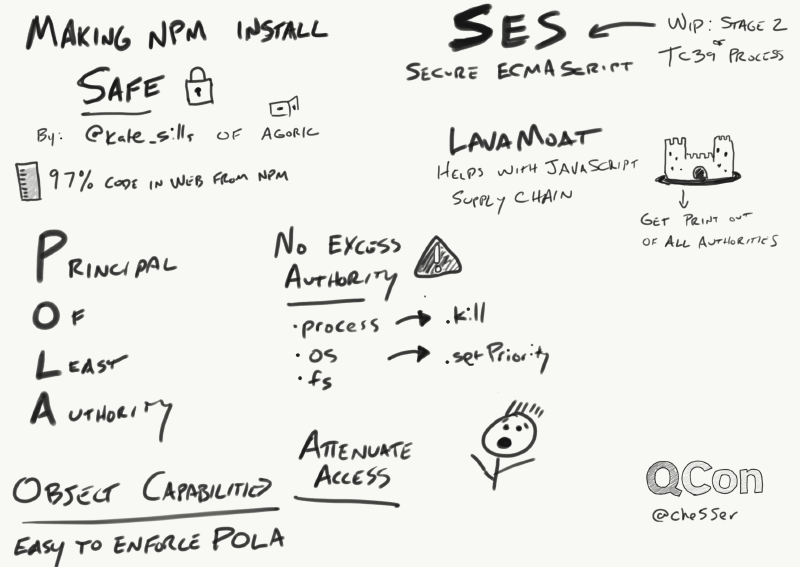 MAKING NPM INSTALL
SAFE
By: @kate_sills OF AGORIC
97% CODE IN WEB FROM NPM
SES
SECURE ECMASCRIPT
WIP: STAGE 2
OF
TC39 PROCESS
LAVAMOAT
HELPS WITH JAVASCRIPT
SUPPLY CHAIN
GET PRINT OUT
OF ALL AUTHORITIES
PRINCIPAL
OF
LEAST
AUTHORITY
NO EXCESS
AUTHORITY
!
· process → .kill
· os → .setPriority
· fs
ATTENUATE
ACCESS
OBJECT CAPABILITIES
EASY TO ENFORCE POLA
QCon
@che55er